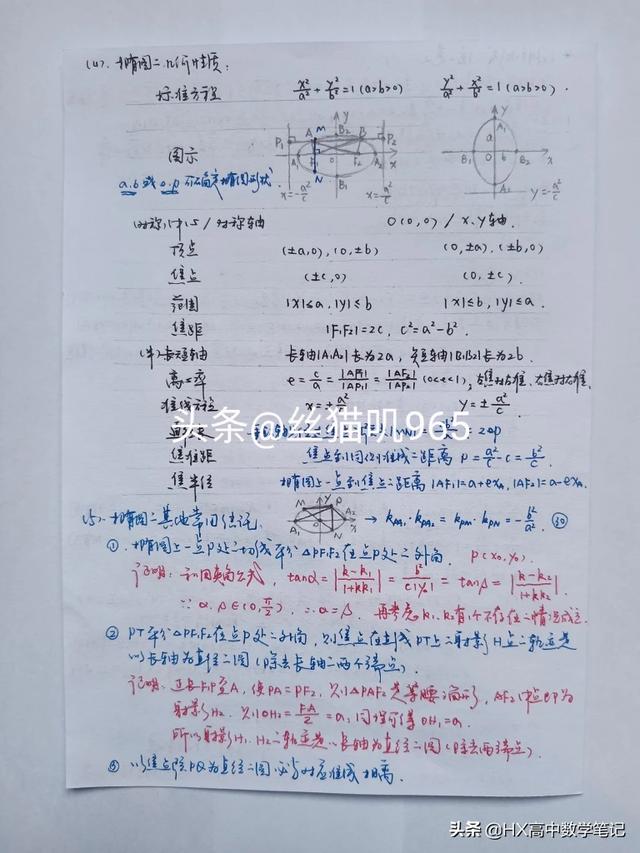 (4). 椭圆二几何性质:
标准方程 x²/a² + y²/b² = 1 (a>b>0) y²/a² + x²/b² = 1 (a>b>0).
图示
a.b 或 e.p 可确定椭圆形状.
对称中心/对称轴 O(0,0) / x.y轴.
顶点 (±a,0), (0,±b) (0,±a), (±b,0)
焦点 (±c,0) (0,±c)
范围 |x|≤a, |y|≤b |x|≤b, |y|≤a.
焦距 |F₁F₂|=2c, c²=a²-b².
(半)长短轴 长轴|A₁A₂|长为2a, 短轴|B₁B₂|长为2b.
离心率 e = c/a = |AF₁|/|AP₁| = |AF₂|/|AP₂| (0<e<1), 左焦对左准, 右焦对右准.
准线方程 x=±a²/c y=±a²/c.
头条@丝猫叽965
= 2ep
焦准距 焦点到同侧准线二距离 p = a²/c - c = b²/c.
焦半径 椭圆上一点到焦点二距离 |AF₁|=a+exA, |AF₂|=a-exA.
(5). 椭圆二其他常用结论: → kPA₁·kPA₂ = kPM·kPN = -b²/a². (30)
① 椭圆上一点P处二切线平分△PF₁F₂在点P处二外角. P(x₀,y₀).
证明: 利用夹角公式, tanα = |(k-k₁)/(1+kk₁)| = b²/c|y₀| = tanβ = |(k-k₂)/(1+kk₂)|.
∵ α,β∈(0,π/2), ∴ α=β. 再考虑k₁、k₂有1个不存在二情况成立.
② PT平分△PF₁F₂在点P处二外角, 则焦点在直线PT上二射影H点二轨迹是
以长轴为直径二圆 (除去长轴二两个端点).
证明: 延长F₁P至A, 使PA=PF₂, 则△PAF₂是等腰三角形, AF₂中点即为
射影H₂. 则OH₂ = F₁A/2 = a, 同理可得OH₁=a.
所以射影H₁、H₂二轨迹是以长轴为直径二圆 (除去两端点).
③ 以焦点弦PQ为直径二圆必与对应准线相离.
头条 @HX高中数学笔记